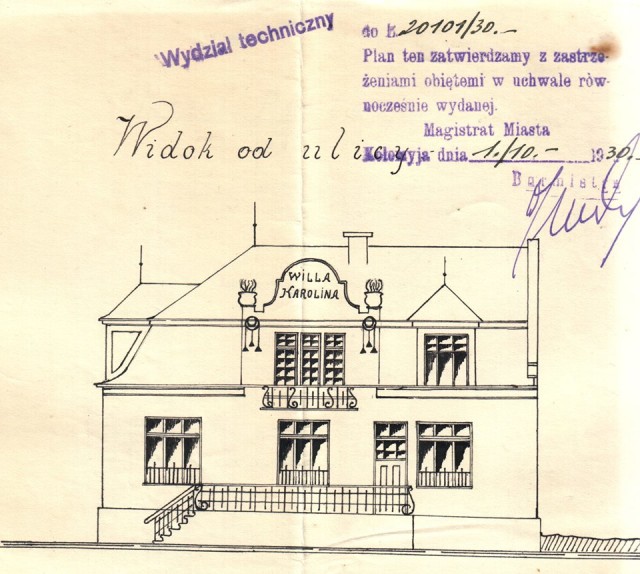 Wydział techniczny
do L. 20101/30.-
Plan ten zatwierdzamy z zastrze-
żeniami objętemi w uchwale rów-
nocześnie wydanej.
Magistrat Miasta
Kołomyja dnia 1./10.- 1930.-
Burmistrz
Widok od ulicy
WILLA
KAROLINA